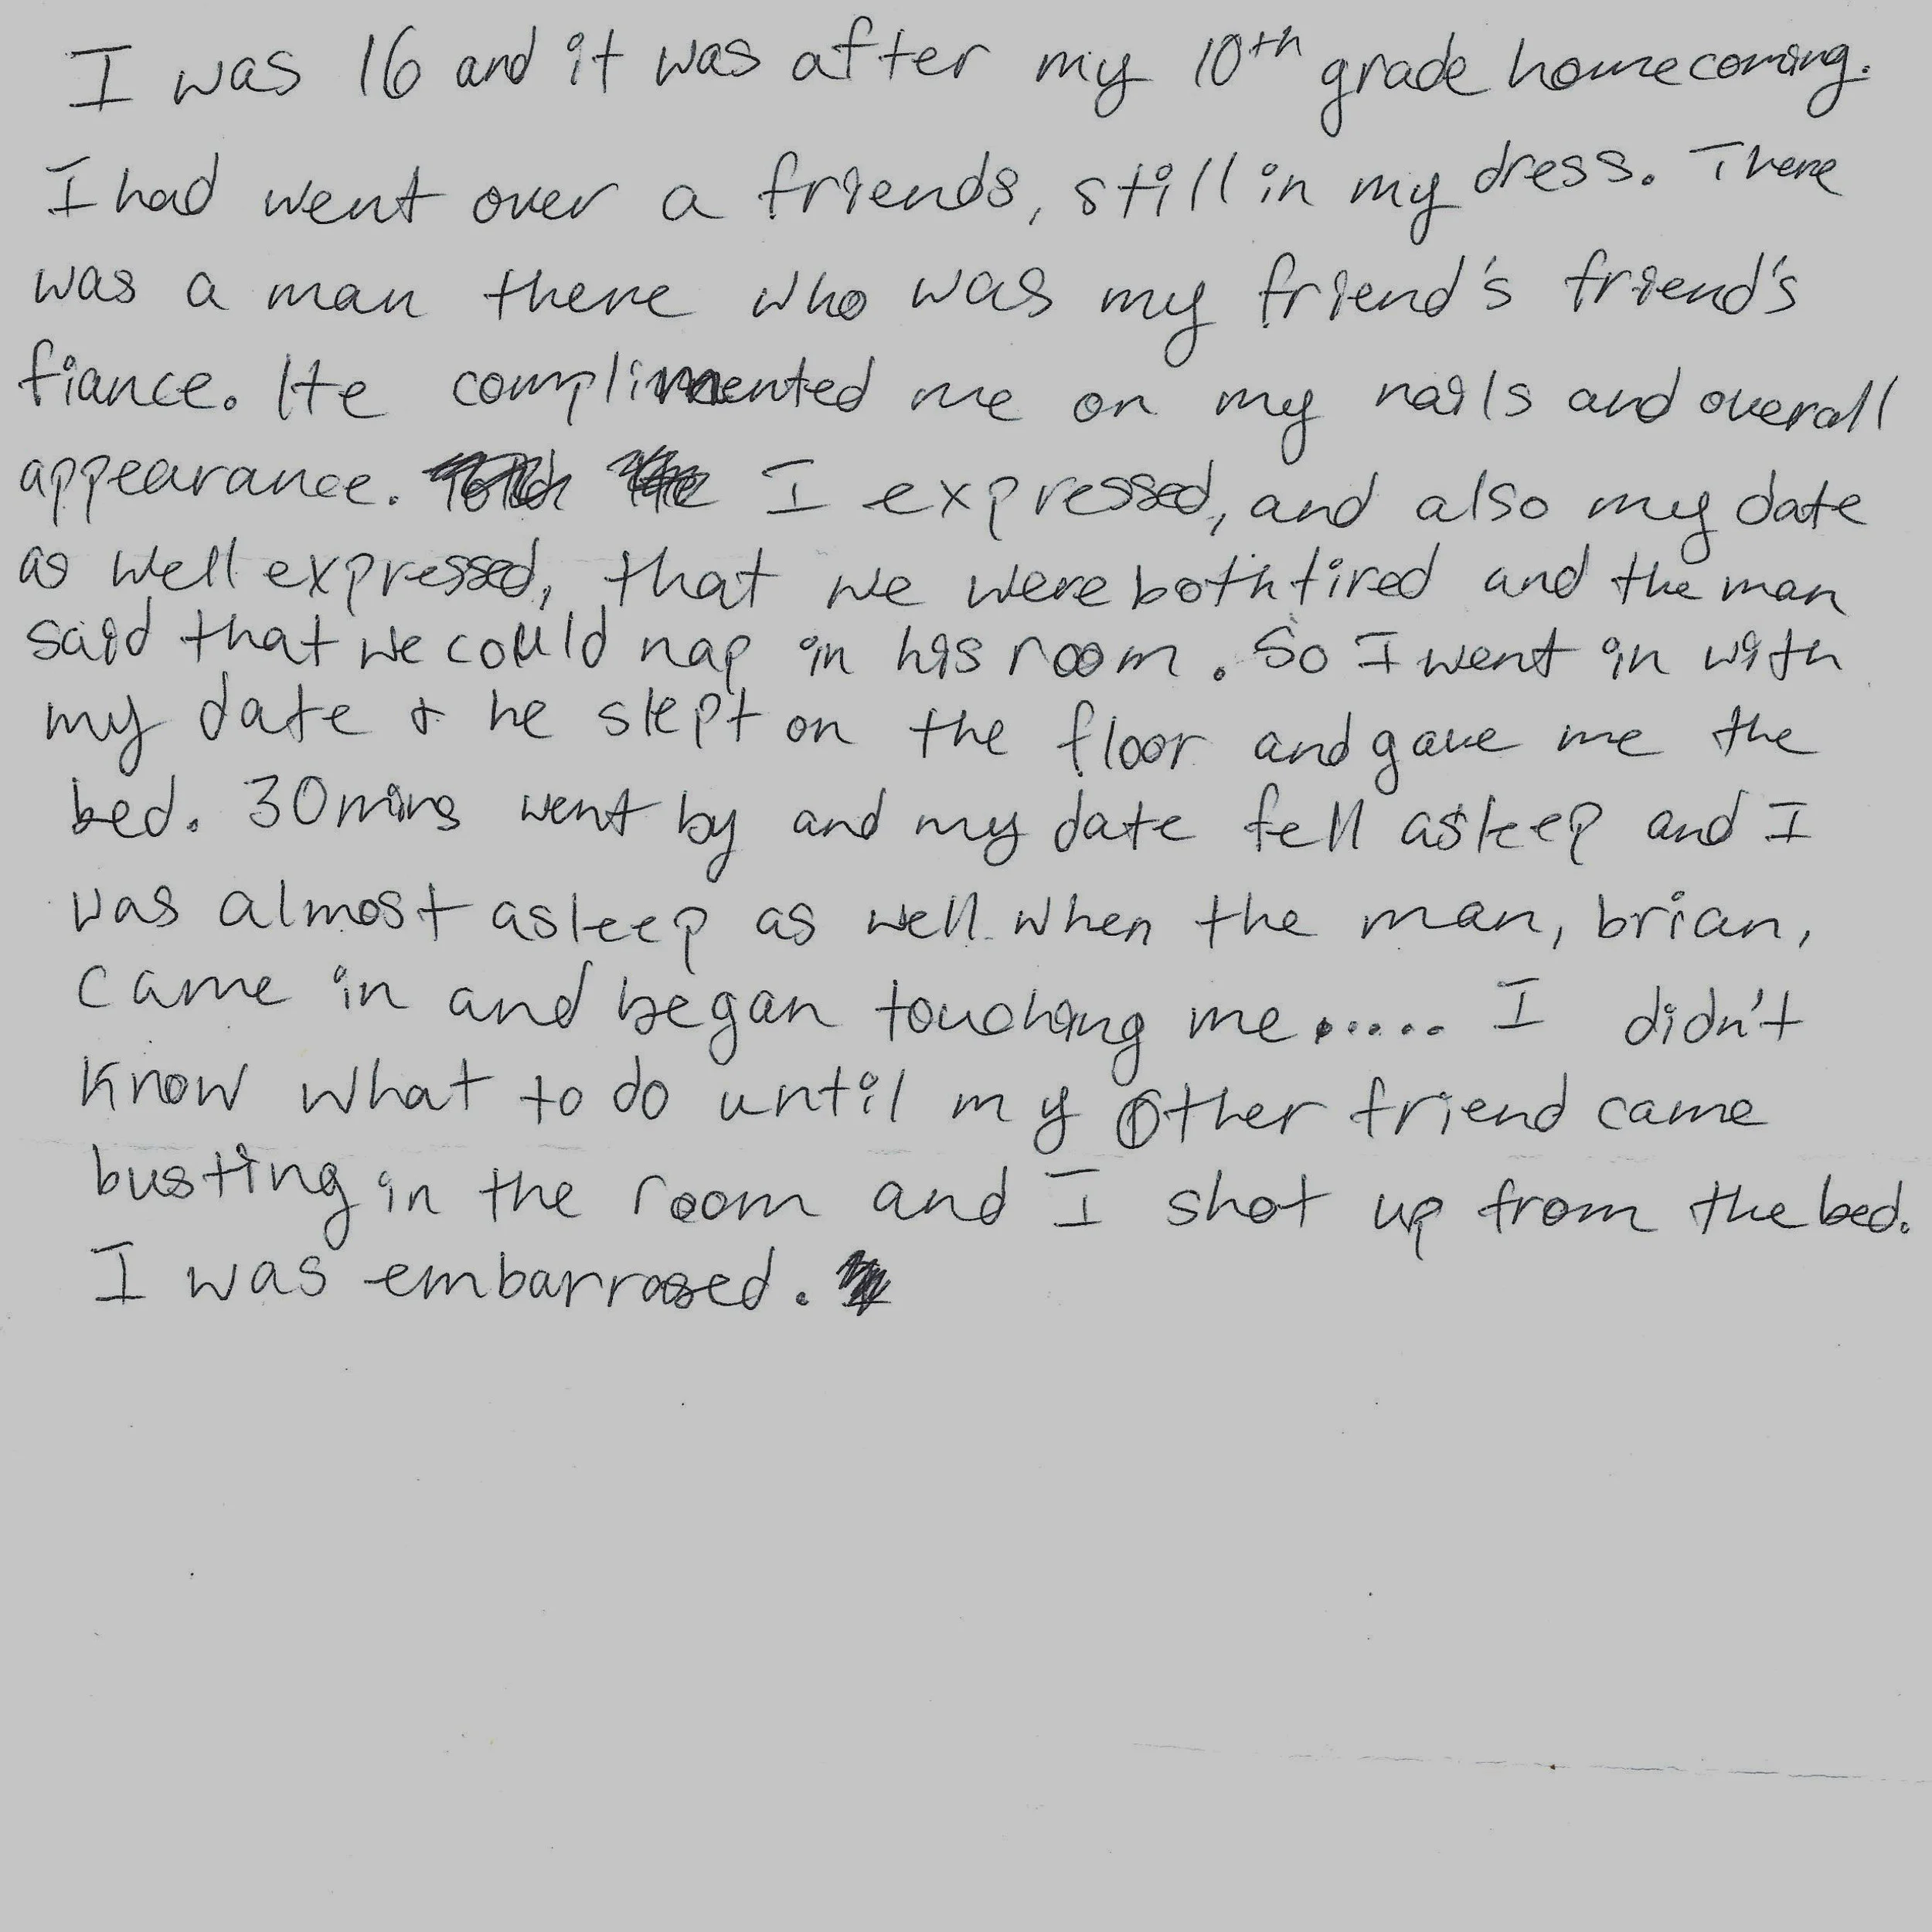 I was 16 and it was after my 10th grade homecoming.
I had went over a friends, still in my dress. There
was a man there who was my friend's friend's
fiance. He complimented me on my nails and overall
appearance. I expressed, and also my date
as well expressed, that we were both tired and the man
said that we could nap in his room. So I went in with
my date & he slept on the floor and gave me the
bed. 30 mins went by and my date fell asleep and I
was almost asleep as well when the man, brian,
came in and began touching me..... I didn't
know what to do until my other friend came
busting in the room and I shot up from the bed.
I was embarrased.